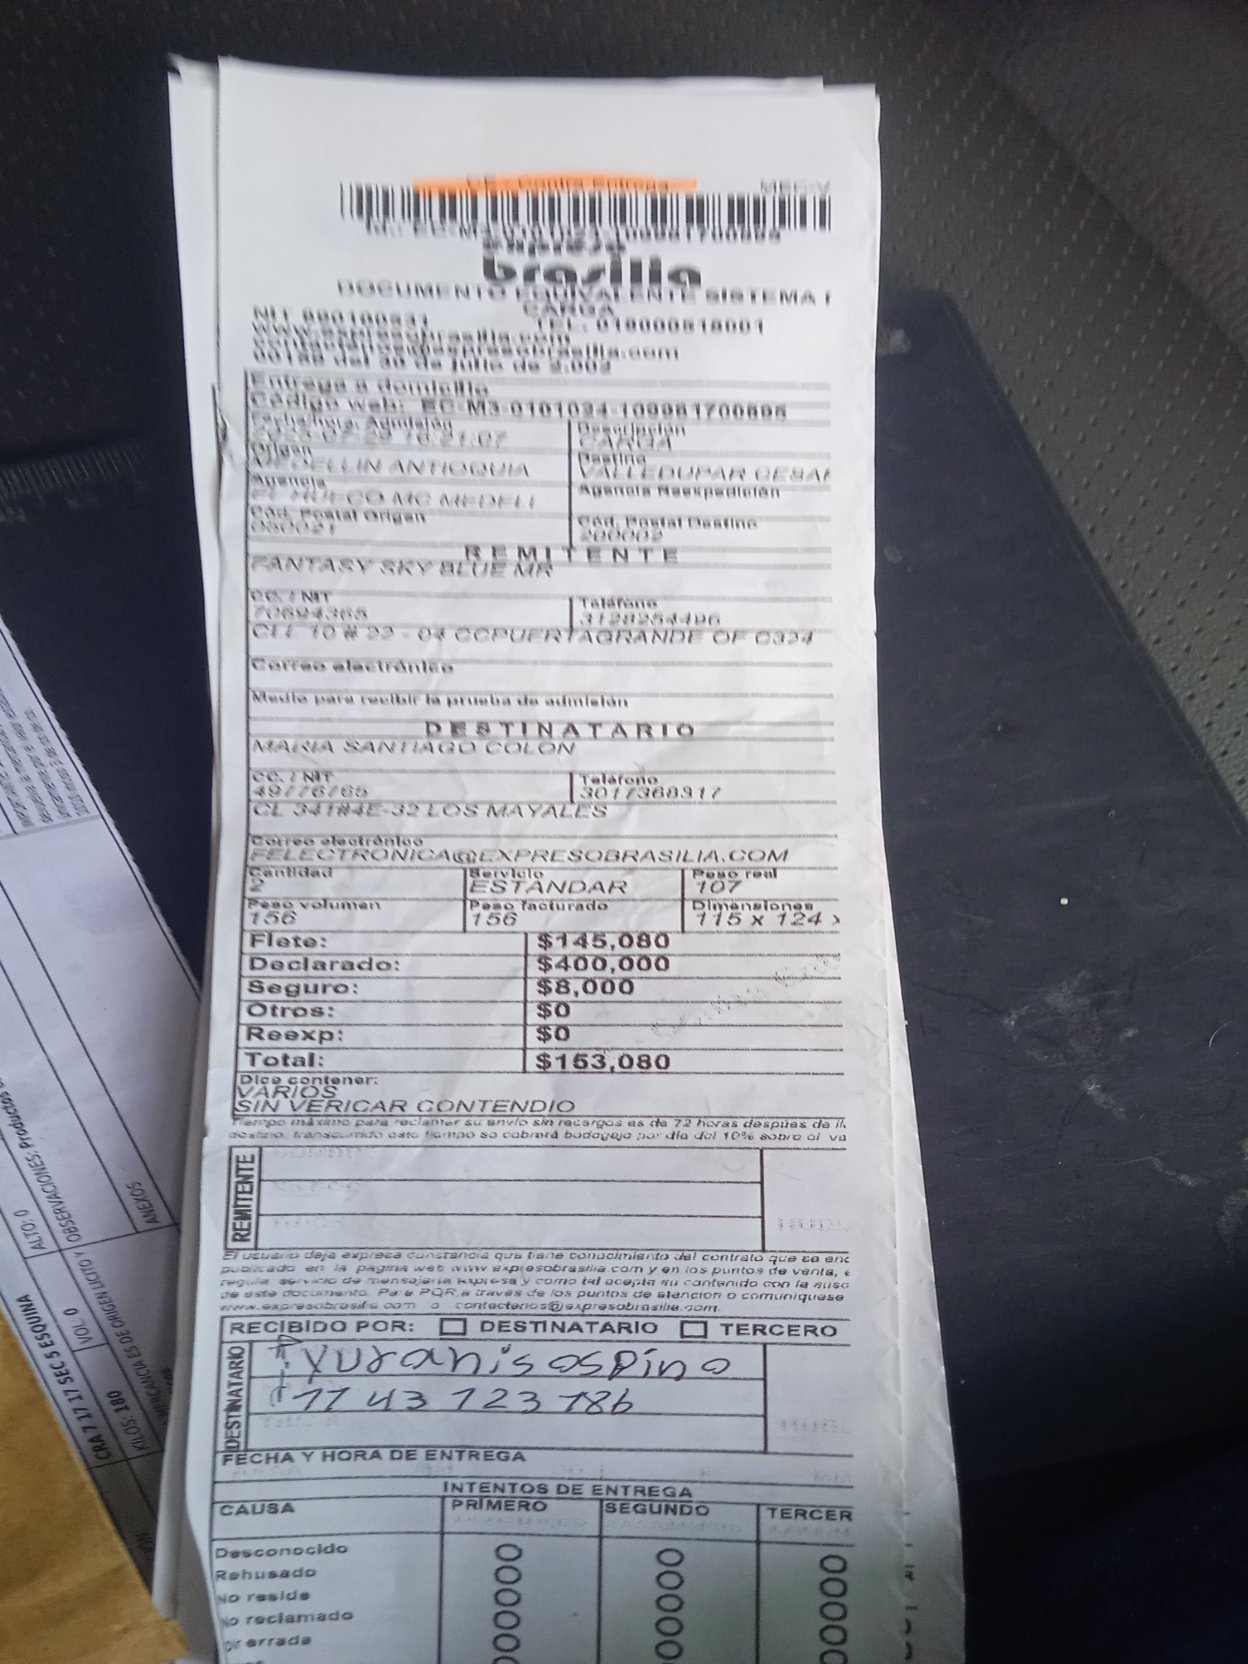 expreso
brasilia
DOCUMENTO EQUIVALENTE SISTEMA
CARGA
NIT 890100531 TEL: 018000518001
www.expresobrasilia.com
contactenos@expresobrasilia.com
00188 del 30 de julio de 2.002
Entrega a domicilio
Código web: EC-M3-0101024-109981700895
Fecha/hora. Admisión Descripción
16:21:07 CARGA
Origen Destino
MEDELLIN ANTIOQUIA VALLEDUPAR CESAR
Agencia Agencia Reexpedición
EL HUECO MC MEDELL
Cód. Postal Origen Cód. Postal Destino
050021 200002
REMITENTE
FANTASY SKY BLUE MR
CC. / NIT Teléfono
70694365 3128254496
CLL 10 # 22 - 04 CCPUERTAGRANDE OF C324
Correo electrónico
Medio para recibir la prueba de admisión
DESTINATARIO
MARIA SANTIAGO COLON
CC. / NIT Teléfono
49776765 3017368317
CL 341#4E-32 LOS MAYALES
Correo electrónico
FELECTRONICA@EXPRESOBRASILIA.COM
Cantidad Servicio Peso real
2 ESTANDAR 107
Peso volumen Peso facturado Dimensiones
156 156 115 x 124 x
Flete: $145,080
Declarado: $400,000
Seguro: $8,000
Otros: $0
Reexp: $0
Total: $153,080
Dice contener:
VARIOS
SIN VERICAR CONTENDIO
Tiempo máximo para reclamar su envío sin recargos es de 72 horas después de
destino, transcurrido este tiempo se cobrará bodegaje por día del 10% sobre el va
REMITENTE
El usuario deja expresa constancia que tiene conocimiento del contrato que se enc
publicado en la página web www expresobrasilia com y en los puntos de venta,
regula servicio de mensajería expresa y como tal acepta su contenido con la susc
de este documento. Para PQR a través de los puntos de atención o comuníquese
www.expresobrasilia.com o contactenos@expresobrasilia.com.
RECIBIDO POR: DESTINATARIO TERCERO
DESTINATARIO
Yuranis ospino
1143123186
FECHA Y HORA DE ENTREGA
INTENTOS DE ENTREGA
CAUSA PRIMERO SEGUNDO TERCER
Desconocido
Rehusado
No reside
No reclamado
Dir errada
ALTO: 0
OBSERVACIONES: Productos
ANEXOS
CRA 7 17 17 SEC 5 ESQUINA
VOL: 0
KILOS: 180
MERCANCIA ES DE ORIGEN LICITO Y